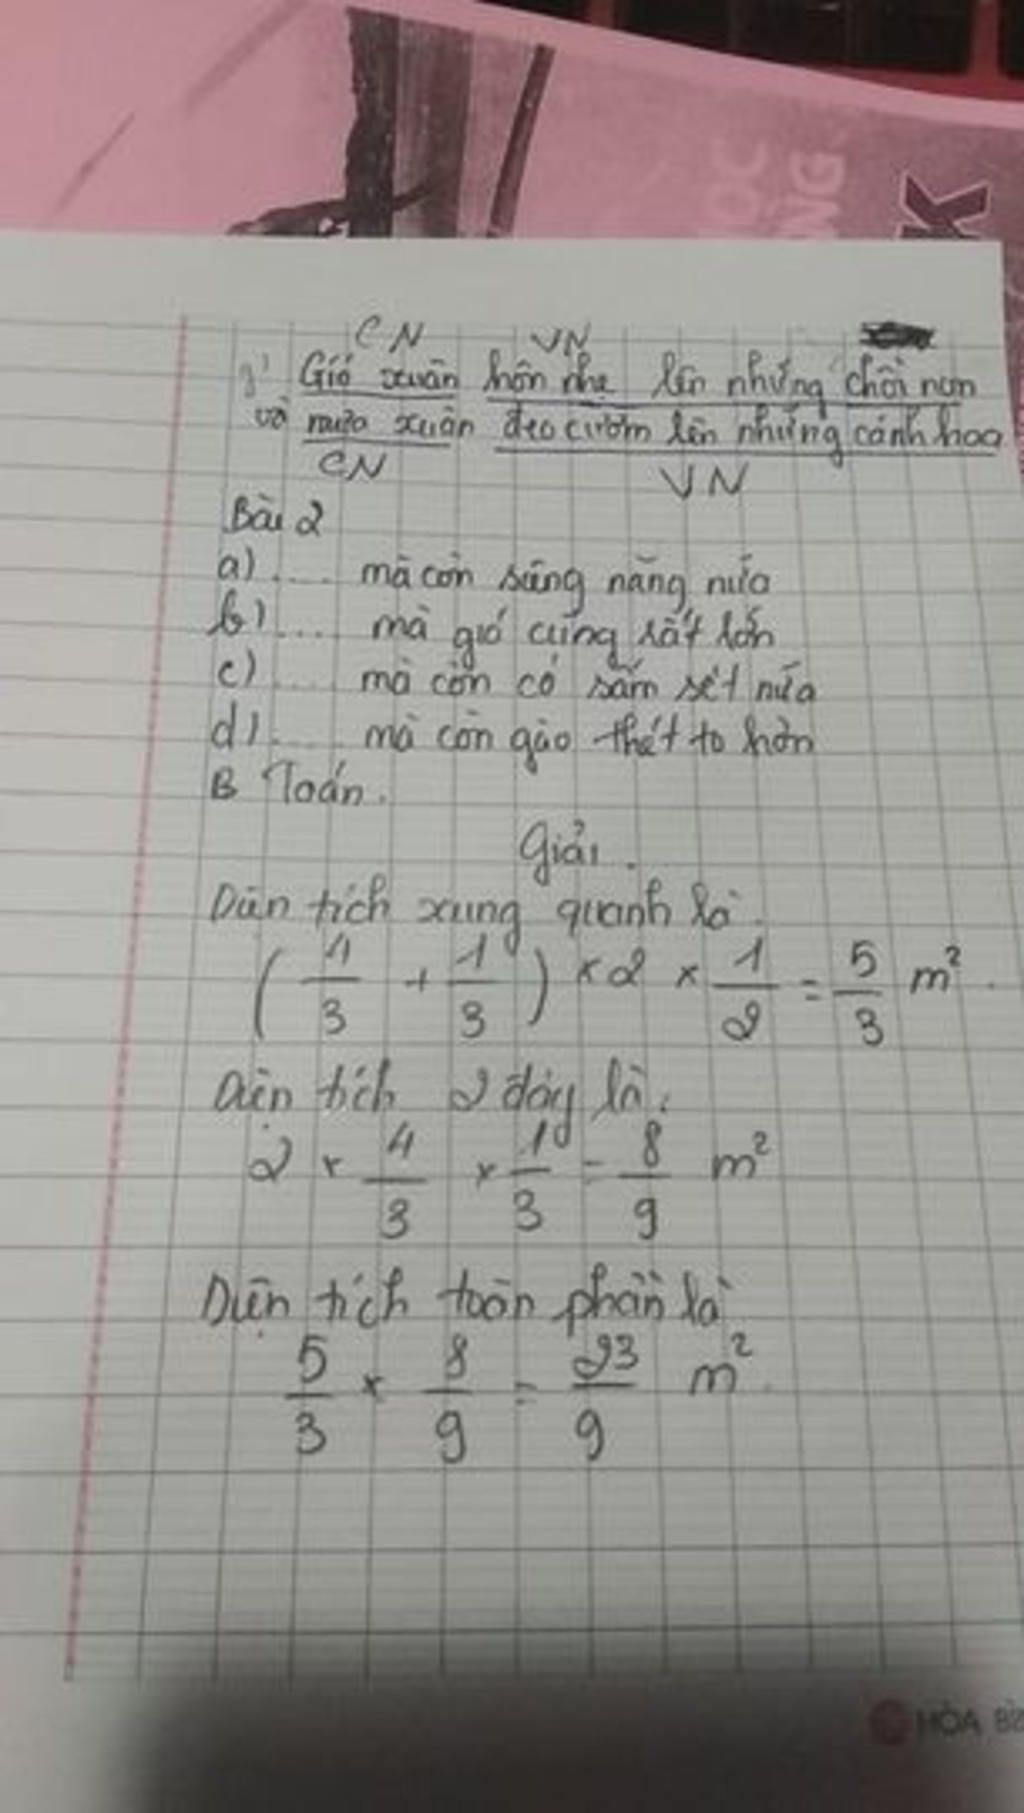 ỌC
ỜNG
K
CN VN
Gió xuân hôn nhẹ lên những chồi non
và mưa xuân đeo cườm lên những cánh hoa
CN VN
Bài 2
a) .... mà còn siêng năng nữa
b) .... mà gió cũng rất lớn
c) .... mà còn có sấm sét nữa
d) .... mà còn gào thét to hơn
B Toán.
Giải.
Diện tích xung quanh là.
( 4/3 + 1/3 ) × 2 × 1/2 = 5/3 m²
Diện tích 2 đáy là.
2 × 4/3 × 1/3 = 8/9 m²
Diện tích toàn phần là
5/3 × 8/9 = 23/9 m²
HÒA BÌ